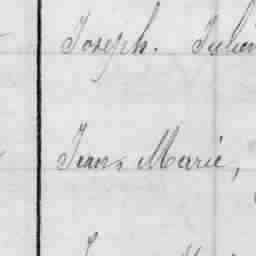 Joseph. Julien
Jean, Marie,